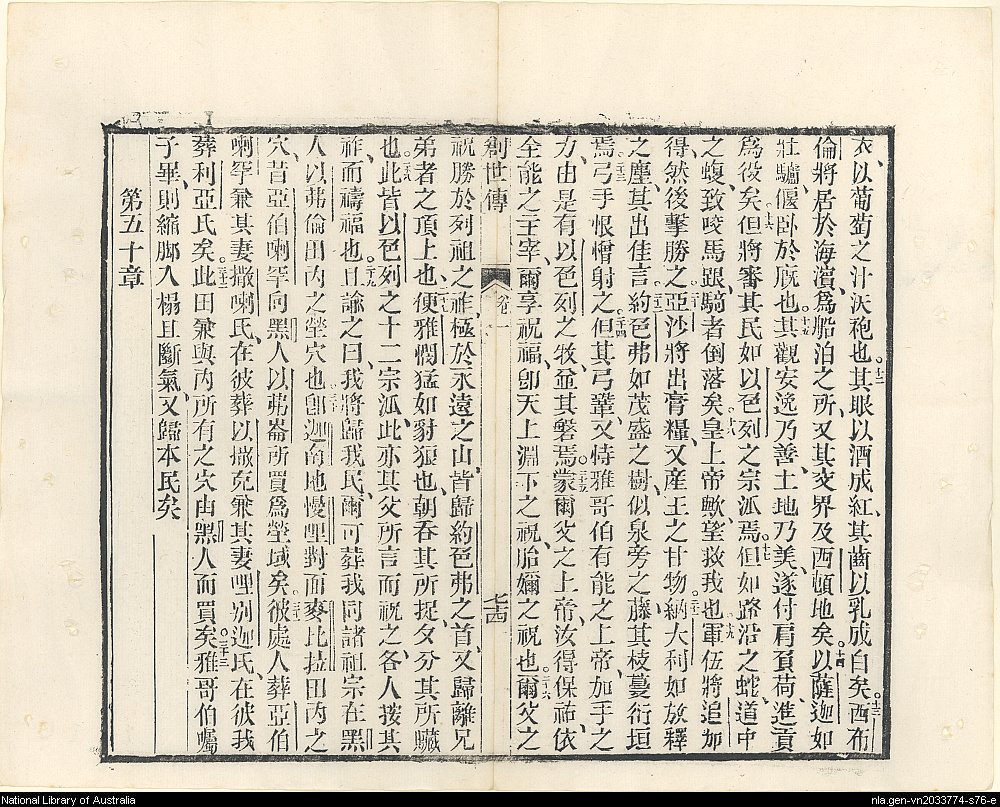 衣、以葡萄之汁沃袍也。十二其眼以酒成紅、其齒以乳成白矣。十三西布
倫將居於海濱、爲船泊之所、又其交界及西頓地矣。十四以薩迦如
壯驢、偃臥於廐也。十五其觀安逸乃善、土地乃美、遂付肩負荷、進貢
爲役矣。十六但將審其民如以色列之宗派焉。十七但如路沿之蛇、道中
之蝮、致咬馬跟、騎者倒落矣。十八皇上帝歟、望救我也。十九軍伍將追加
得、然後擊勝之。二十亞沙將出膏糧、又産王之甘物。二十一納大利如放釋
之麈、其出佳言。二十二約色弗如茂盛之樹、似泉旁之藤、其枝蔓衍垣
焉。二十三弓手恨憎射之。二十四但其弓鞏、又恃雅哥伯有能之上帝、加手之
力、由是有以色列之牧、並其磐焉。二十五蒙爾父之上帝、汝得保祐、依
全能之主宰、爾享祝福、卽天上淵下之祝、胎嬭之祝也。二十六爾父之
創世傳 卷一 七四
祝勝於列祖之祚、極於永遠之山、皆歸約色弗之首、又歸離兄
弟者之頂上也。二十七便雅憫猛如豺狼也、朝吞其所捉、夕分其所贓
也。二十八此皆以色列之十二宗派、此亦其父所言而祝之、各人按其
祚而禱福也。二十九且諭之曰、我將歸我民、爾可葬我同諸祖宗在黑
人以弗倫田內之塋穴也。三十卽迦南地慢哩對面麥比拉田內之
穴、昔亞伯喇罕向黑人以弗崙所買爲塋域矣。三十一彼處人葬亞伯
喇罕兼其妻撒喇氏、在彼葬以撒克兼其妻哩別迦氏、在彼我
葬利亞氏矣。三十二此田兼與內所有之穴由黑人而買矣。三十三雅哥伯囑
子畢、則縮腳入榻、且斷氣、又歸本民矣
第五十章
National Library of Australia
nla.gen-vn2033774-s76-e